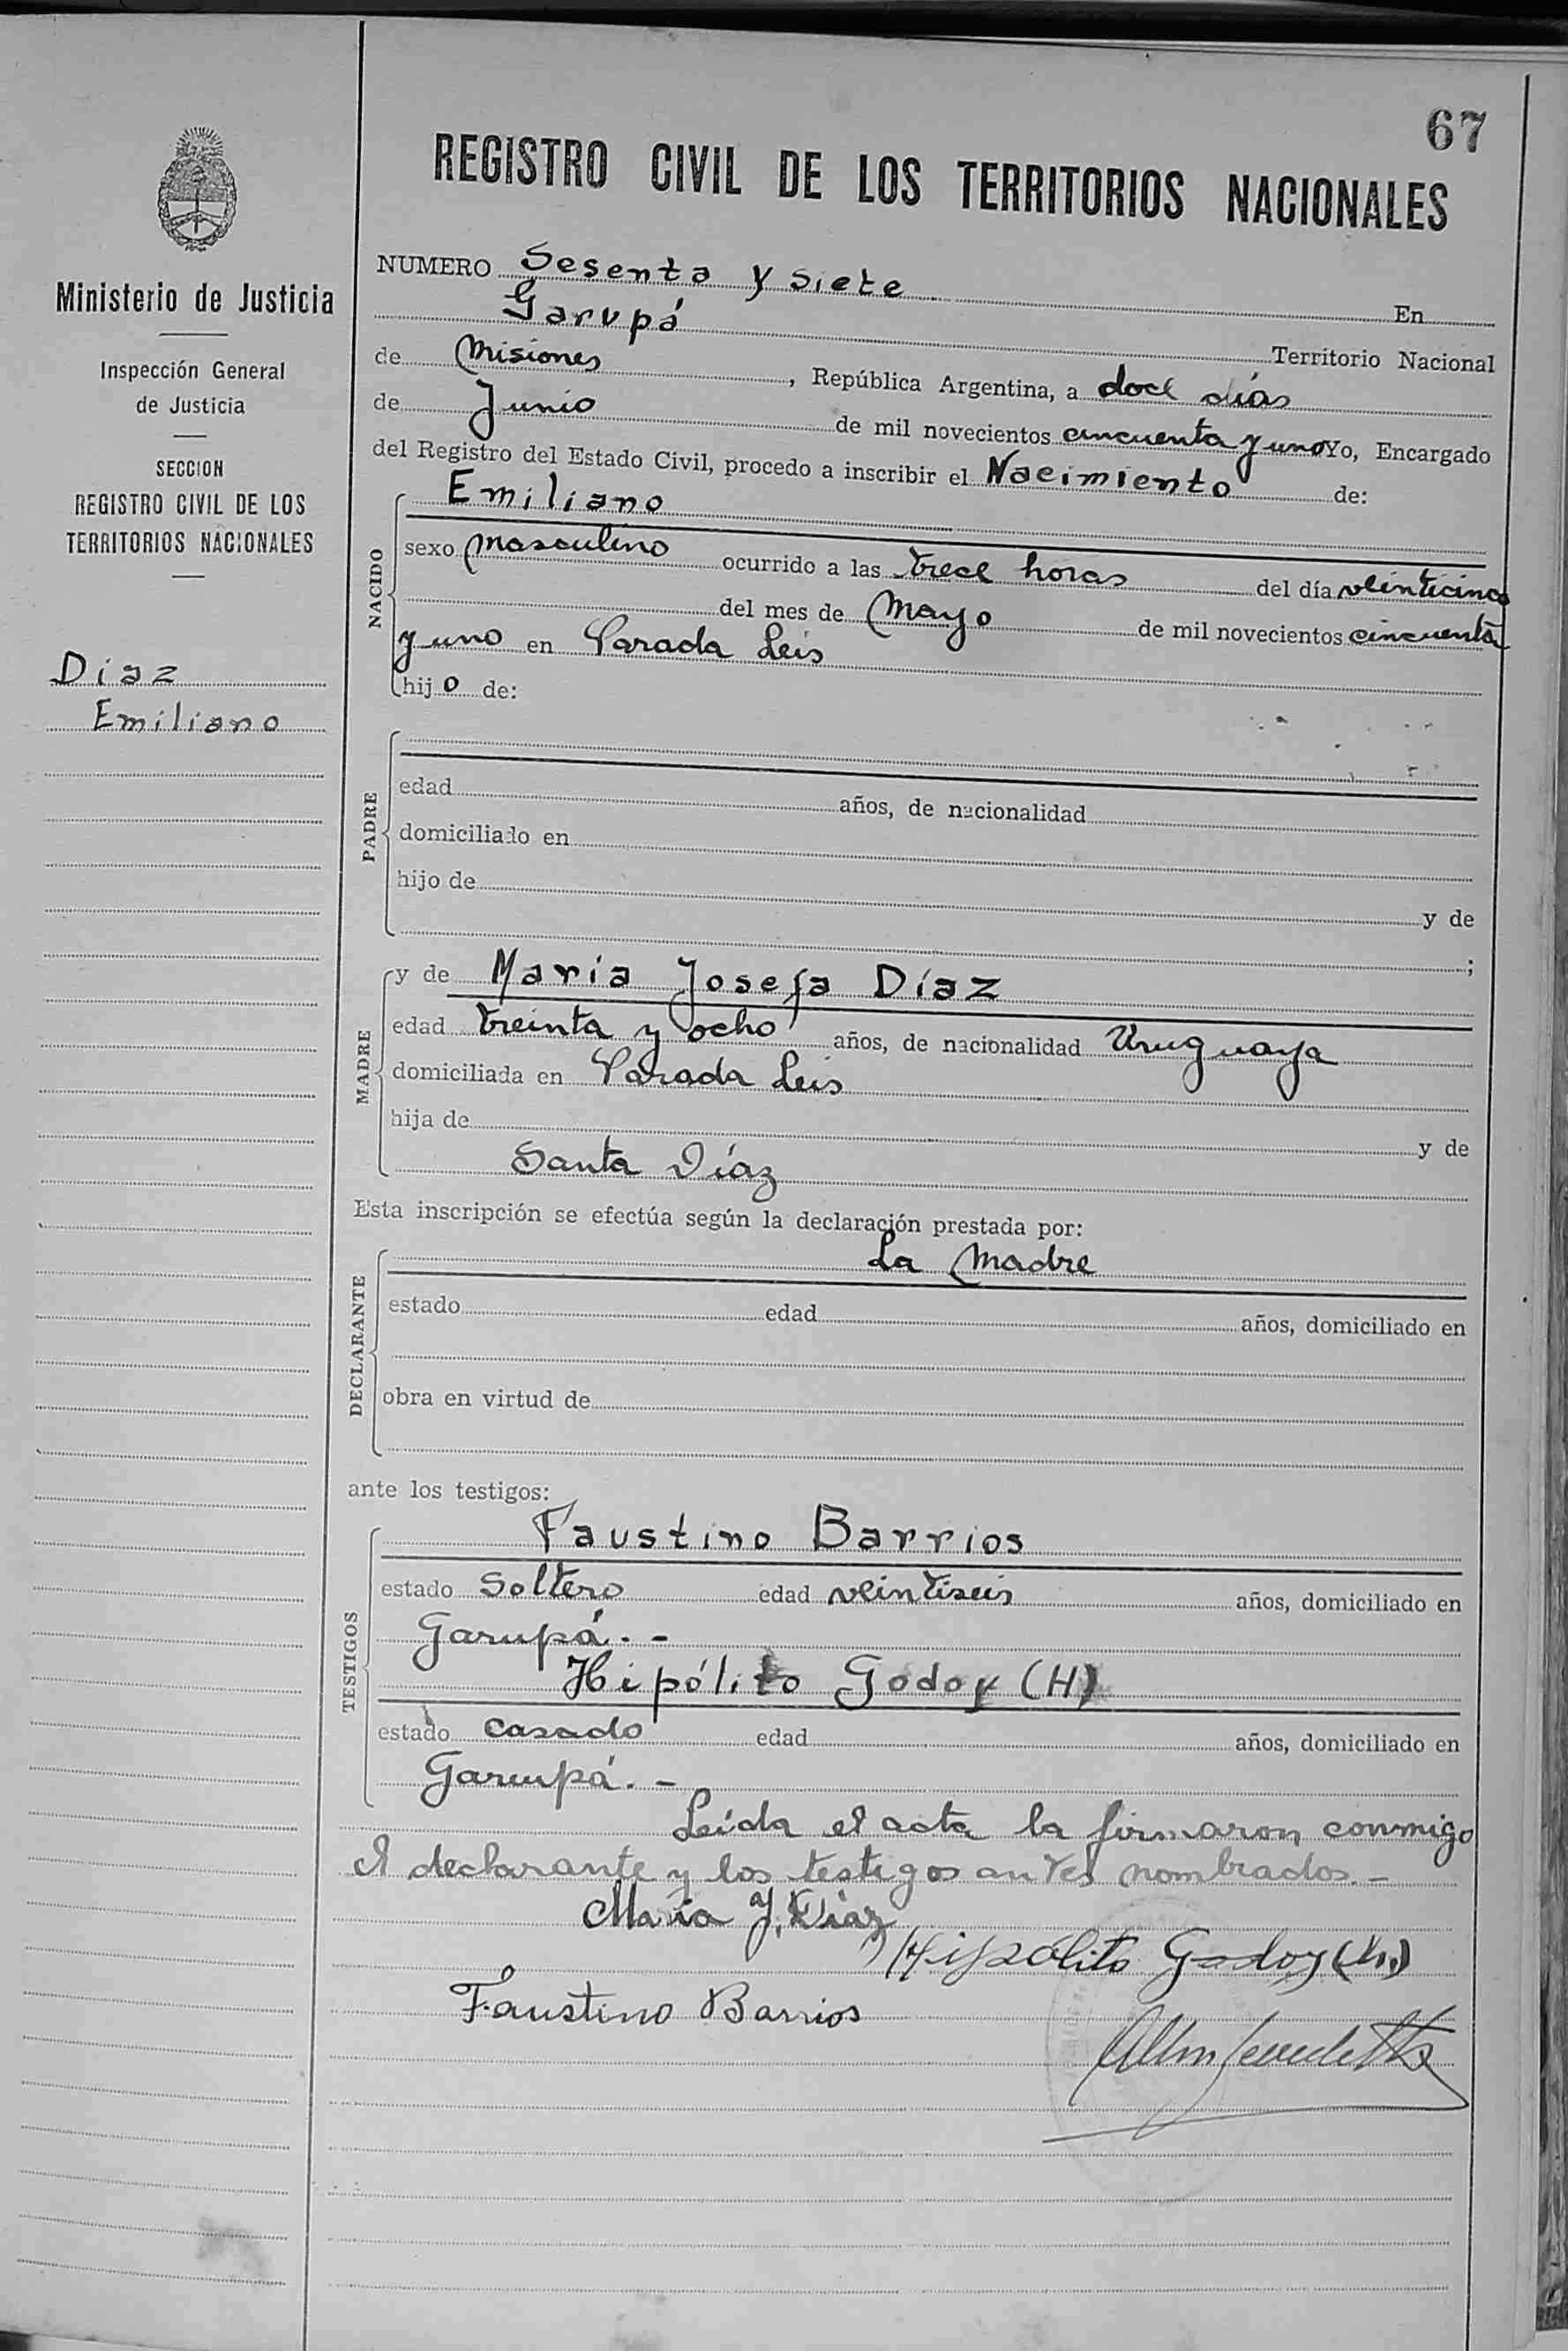 67
REGISTRO CIVIL DE LOS TERRITORIOS NACIONALES
Ministerio de Justicia
Inspección General
de Justicia
SECCION
REGISTRO CIVIL DE LOS
TERRITORIOS NACIONALES
Díaz
Emiliano
NUMERO Sesenta y siete En
Garupá Territorio Nacional
de Misiones, República Argentina, a doce días
de Junio de mil novecientos cincuenta y uno Yo, Encargado
del Registro del Estado Civil, procedo a inscribir el Nacimiento de:
NACIDO
Emiliano
sexo masculino ocurrido a las trece horas del día veinticinco
del mes de Mayo de mil novecientos cincuenta
y uno en Parada Leis
hijo de:
PADRE
edad años, de nacionalidad
domiciliado en
hijo de y de
;
MADRE
y de María Josefa Díaz
edad treinta y ocho años, de nacionalidad Uruguaya
domiciliada en Parada Leis
hija de y de
Santa Díaz
Esta inscripción se efectúa según la declaración prestada por:
DECLARANTE
La Madre
estado edad años, domiciliado en
obra en virtud de
ante los testigos:
TESTIGOS
Faustino Barrios
estado Soltero edad veintiseis años, domiciliado en
Garupá.-
Hipólito Godoy (H)
estado casado edad años, domiciliado en
Garupá.-
Leída el acta la firmaron conmigo
el declarante y los testigos antes nombrados.-
María J. Díaz
Hipólito Godoy (h)
Faustino Barrios